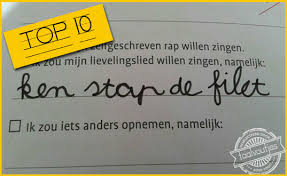 TOP 10
engeschreven rap willen zingen.
k zou mijn lievelingslied willen zingen, namelijk:
ken stap de filet
Ik zou iets anders opnemen, namelijk:
taalvoutjes